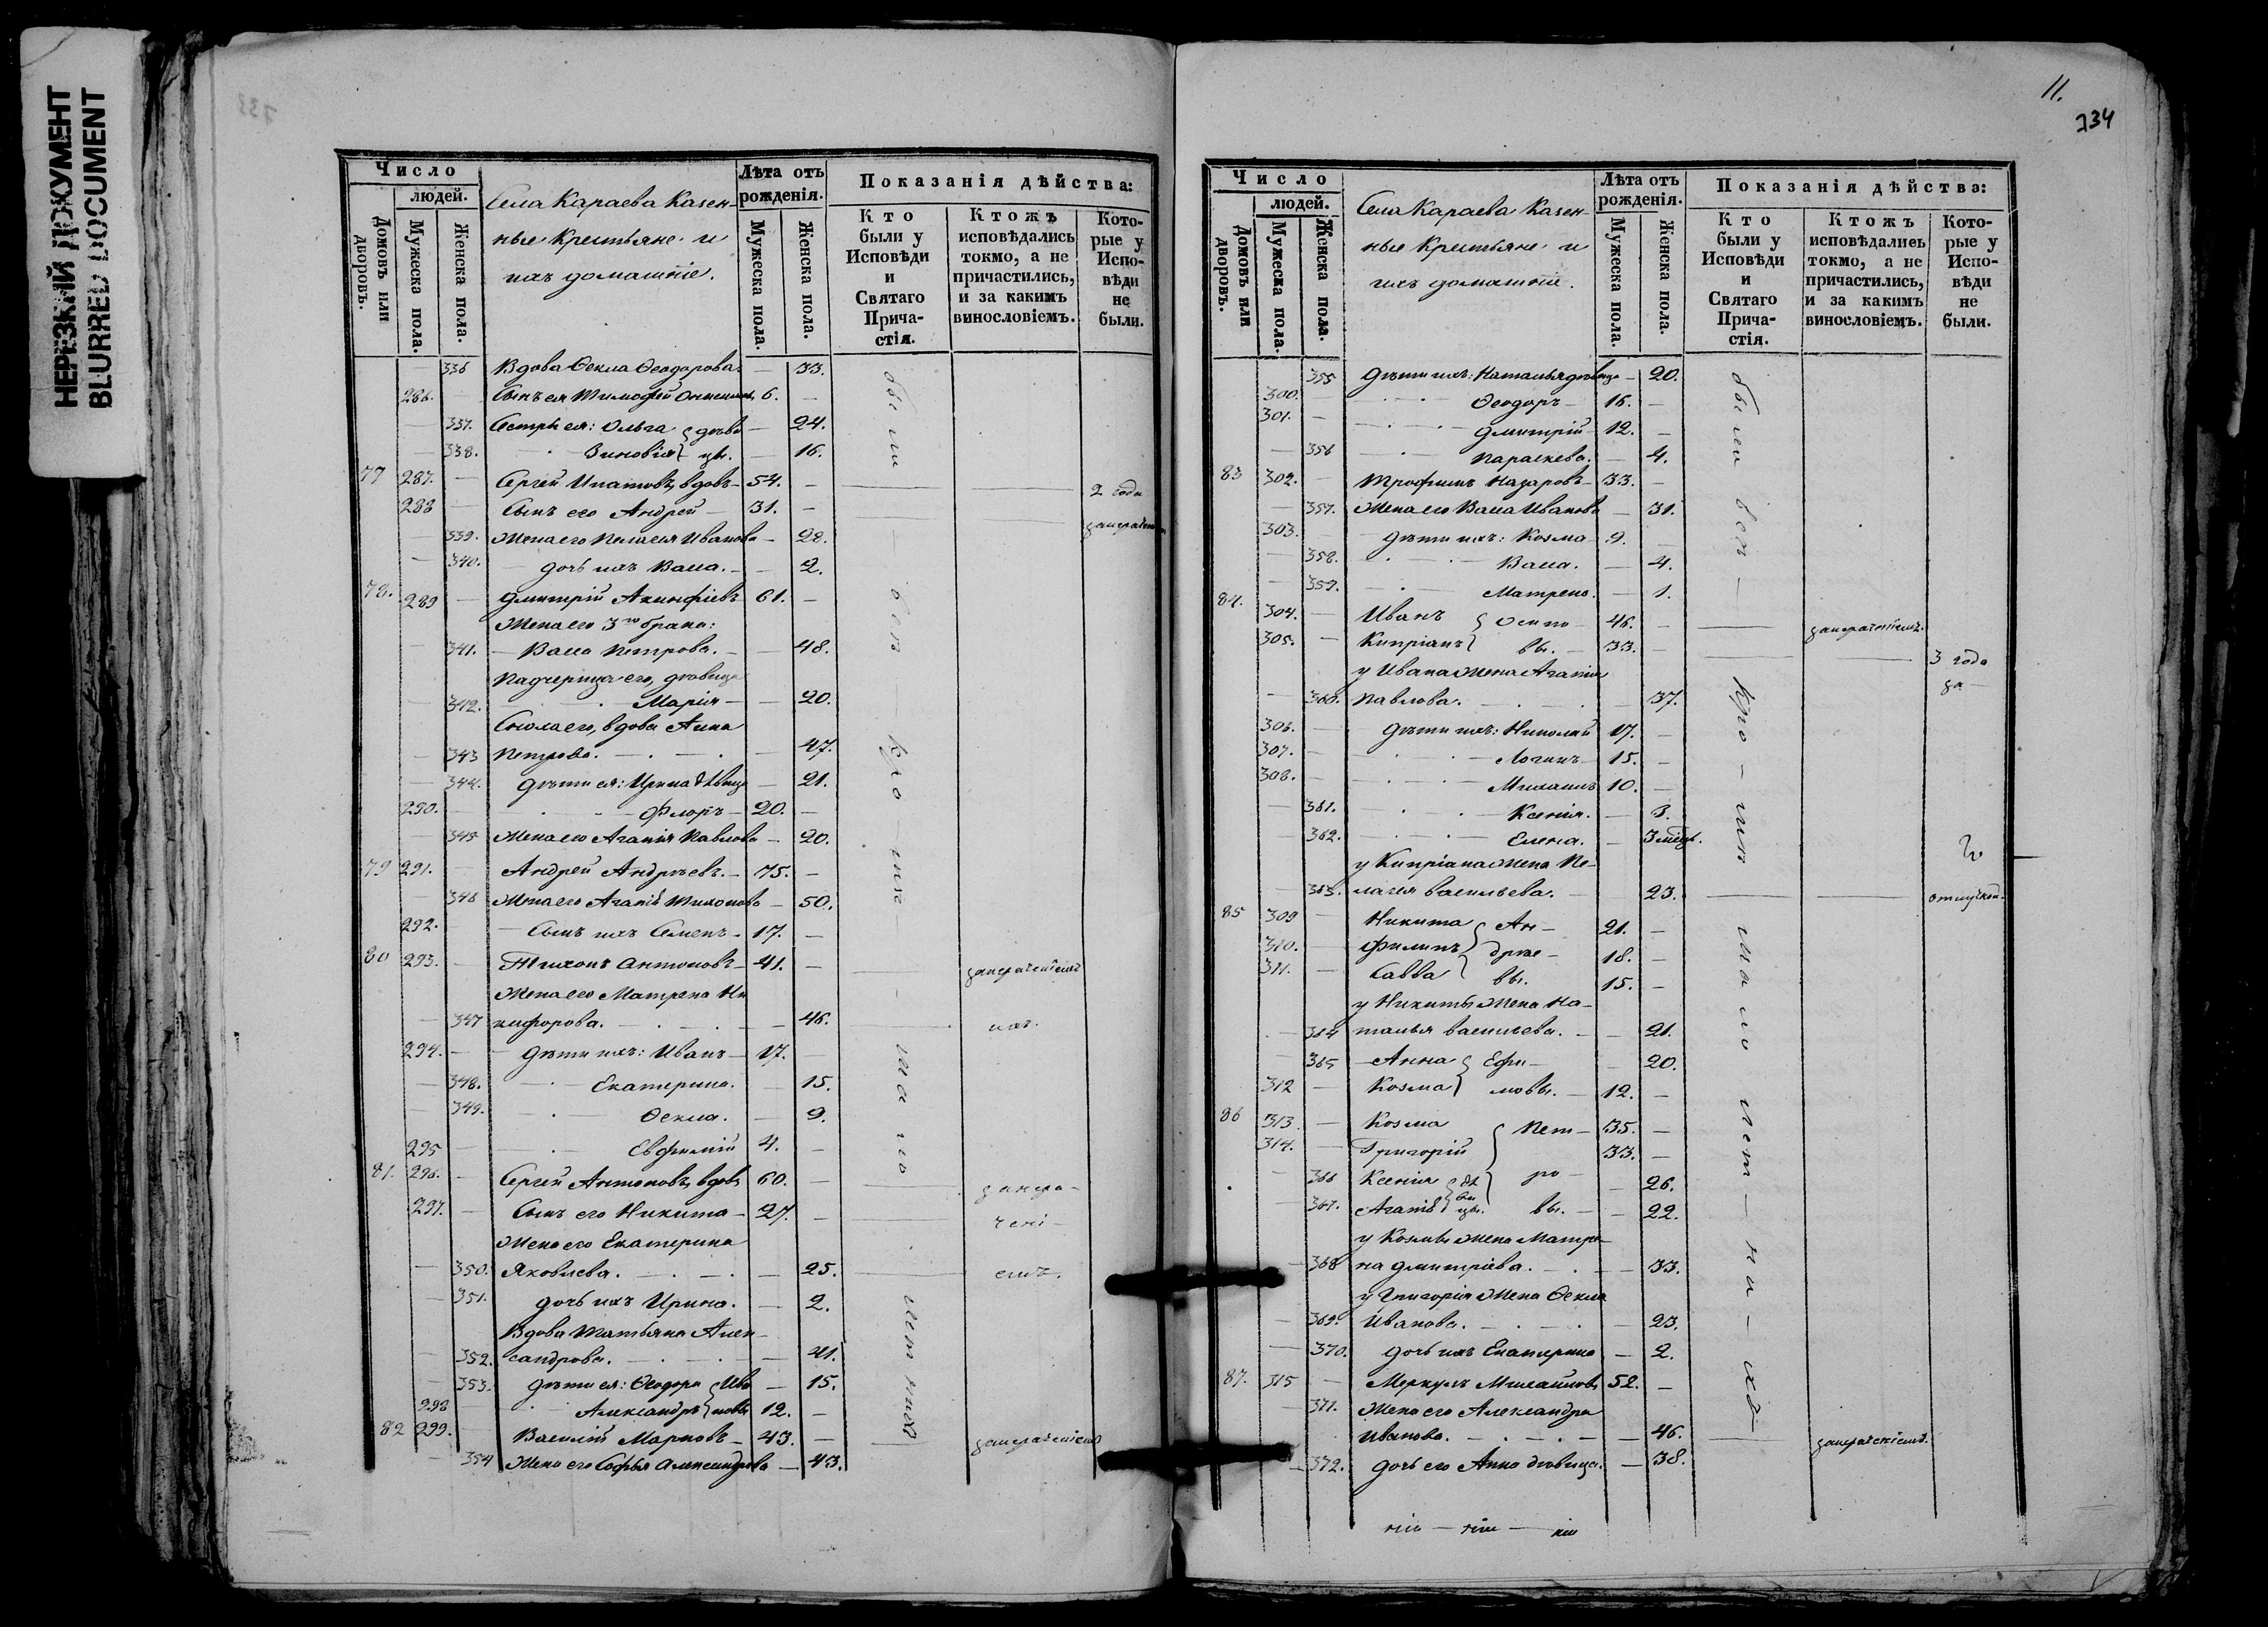 НЕРЕЗКИЙ ДОКУМЕНТ
BLURRED DOCUMENT
Число
людей.
Домовъ или дворовъ.
Мужеска пола.
Женска пола.
Села Караева Казен-
ные Крестьяне и
ихъ домашніе.
Лѣта отъ рожденія.
Мужеска пола.
Женска пола.
Показанія дѣйства:
Кто были у Исповѣди и Святаго Причастія.
Ктожъ исповѣдались токмо, а не причастились, и за какимъ винословіемъ.
Которые у Исповѣди не были.
336 Вдова Ѳекла Ѳеодорова — 33.
286. Сынъ ея Тимофей 6. —
337. Сестры ея: Ольга дѣви — 24.
338. Зиновія цы. — 16.
77 287. Сергей Ипатовъ, вдовъ — 54. — 2 года
288 Сынъ его Андрей — 31. —
339. Жена его Пелагея Иванова — 28.
340. дочь ихъ Васса. — 2.
78. 289 Дмитрій Акинфіевъ 61. —
Жена его 3го брака:
341. Васса Петрова. — 48.
Падчерица его, дѣвица
342. Марія — 20.
Сноха его, вдова Анна
343 Петрова. — 47.
344. дѣти ея: Ирина дѣвица — 21.
290. Флоръ — 20. —
345 Жена его Агапія Павлова — 20.
79 291. Андрей Андреевъ. — 75. —
346 Жена его Агапія Тихонова — 50.
292. Сынъ ихъ Семенъ. 17. —
80 293. Тихонъ Антоновъ — 41. — запрещеніемъ
Жена его Матрена Ни
347 кифорова. — 46. ихъ.
294. дѣти ихъ: Иванъ — 17. —
348. Екатерина. — 15.
349. Ѳекла. — 9.
295 Евфимій 4. —
81. 296. Сергей Антоновъ, вдовъ 60. —
297. Сынъ его Никита — 27. —
Жена его Екатерина
350. Яковлева. — 25.
351. дочь ихъ Ирина. — 2.
Вдова Татьяна Алек-
352. сандрова. — 41.
353. дѣти ея: Ѳеодора Ива — 15.
298 Александръ новы 12. —
82 299. Василій Марковъ — 43. —
354 Жена его Софья Александрова — 43.
были
всѣ
кро-
мѣ
мало
лѣтнихъ
11.
734
Число
людей.
Домовъ или дворовъ.
Мужеска пола.
Женска пола.
Села Караева Казен-
ные Крестьяне и
ихъ домашніе.
Лѣта отъ рожденія.
Мужеска пола.
Женска пола.
Показанія дѣйства:
Кто были у Исповѣди и Святаго Причастія.
Ктожъ исповѣдались токмо, а не причастились, и за какимъ винословіемъ.
Которые у Исповѣди не были.
355 Дѣти ихъ: Наталья дѣвица — 20.
300. Ѳеодоръ — 16. —
301. Дмитрій — 12. —
356 Параскева. — 4.
83 302. Трофимъ Назаровъ — 33. —
357. Жена его Васса Иванова — 31.
303. дѣти ихъ: Козма 9. —
358. Васса. — 4.
359. Матрена. — 1.
84. 304. Иванъ Осипо — 46. —
305. Кипріанъ вы. — 33. — 3 года
у Ивана Жена Агапія
360. Павлова. — 37.
306. дѣти ихъ: Николай 17. —
307. Логинъ — 15. —
308. Михаилъ 10. —
361. Ксенія. — 3.
362. Елена. — 3 мѣсц.
у Кипріана Жена Пе-
363. лагея Васильева. — 23.
85 309 Никита Ан- 21. —
310. Филипъ дрее- 18. —
311. Савва вы. 15. —
у Никиты Жена На-
364 талья Васильева. — 21.
365 Анна Ефи- 20.
312 Козма мовы. — 12. —
86 313. Козма Пет- 35. —
314. Григорій 33. —
366 Ксенія ро- 26.
367. Агапія вы. — 22.
у Козмы Жена Матре-
368 на Дмитріева. — 33.
у Григорія Жена Ѳекла
369. Иванова. — 23.
370. дочь ихъ Екатерина — 2.
87. 315 Меркулъ Михайловъ 52. —
371. Жена его Александра
Иванова. — 46.
372. дочь его Анна дѣвица. — 38.
были
всѣ —
кро-мѣ
мало
лѣт-ни-хъ